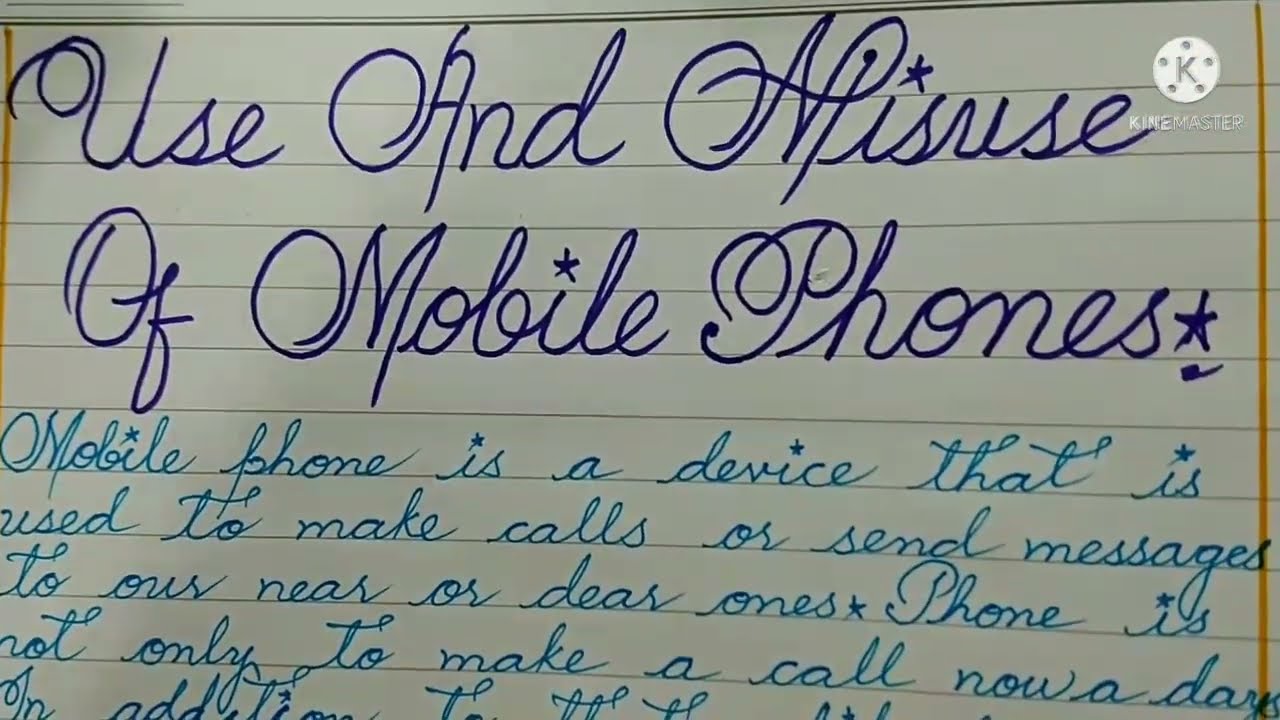 Use And Misuse
KINEMASTER
Of Mobile Phones.
Mobile phone is a device that is
used to make calls or send messages
to our near or dear ones. Phone is
not only to make a call now a days
In addition to